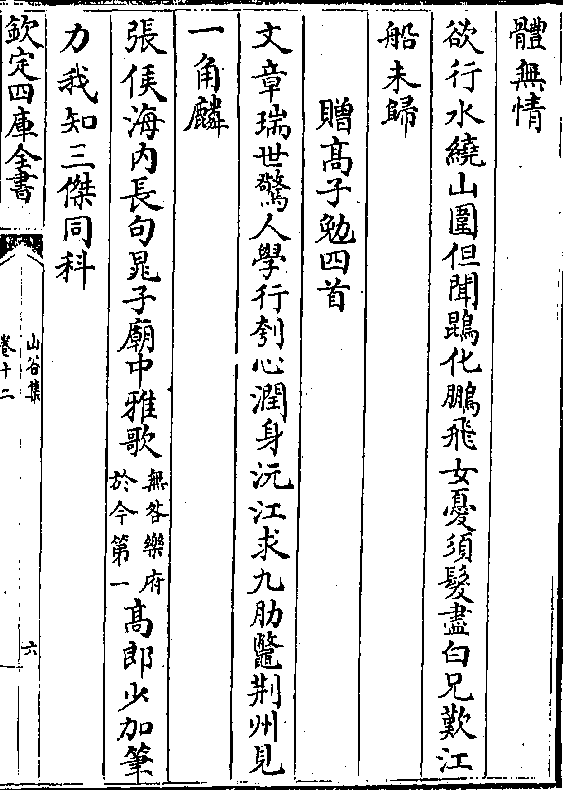 體無情
欲行水繞山圍但聞鵾化鵬飛女憂須髮盡白兄歎江
船未歸
贈髙子勉四首
文章瑞世驚人學行刳心潤身沅江求九肋鼈荆州見
一角麟
張侯海内長句晁子廟中雅歌無咎樂府於今第一髙郎少加筆
力我知三傑同科
欽定四庫全書
山谷集
卷十二
六